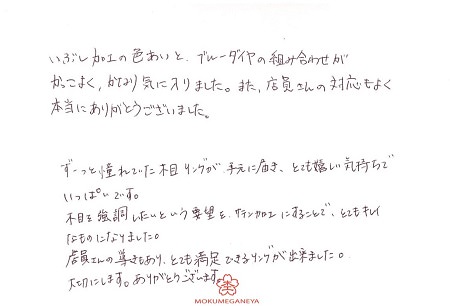 いぶし加工の色あいと、ブルーダイヤの組み合わせが
かっこよく、かなり気に入りました。また、店員さんの対応もよく
本当にありがとうございました。
ずーっと憧れていた木目リングが手元に届き、とても嬉しい気持ちで
いっぱいです。
木目を強調したいという要望を、サテン加工にすることで、とてもキレイ
なものになりました。
店員さんの導きもあり、とても満足できるリングが出来ました。
大切にします。ありがとうございます。
MOKUMEGANEYA